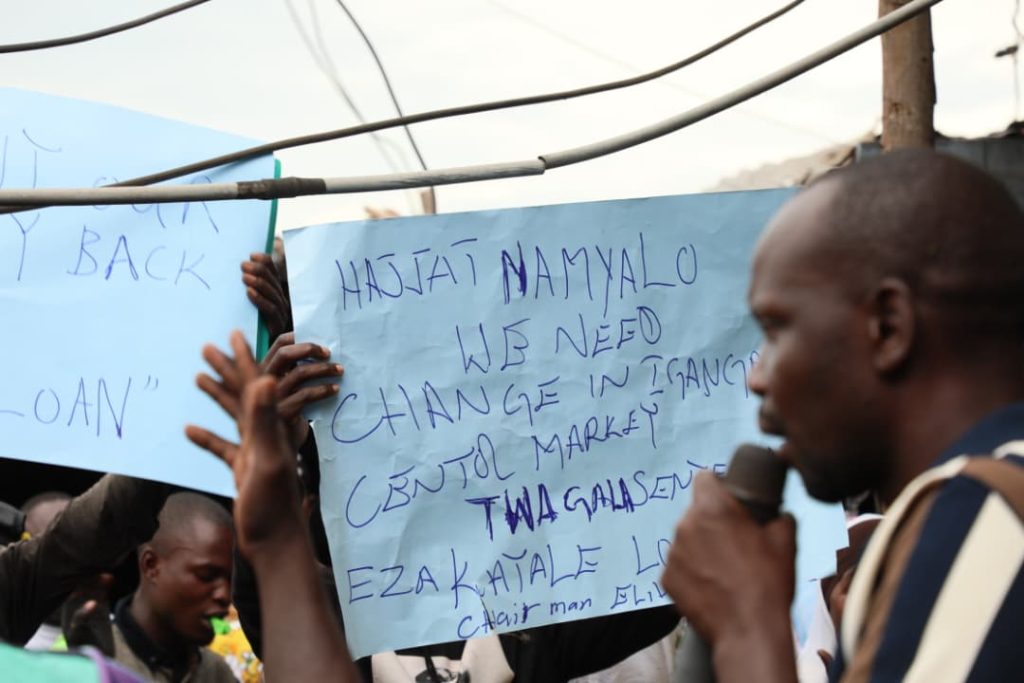 OUR
BACK
LOAN"
HAJJAT NAMYALO
WE NEED
CHANGE IN IGANGA
CENTOL MARKEY
TWAGALA SENTE
EZAKATALE
Chair man